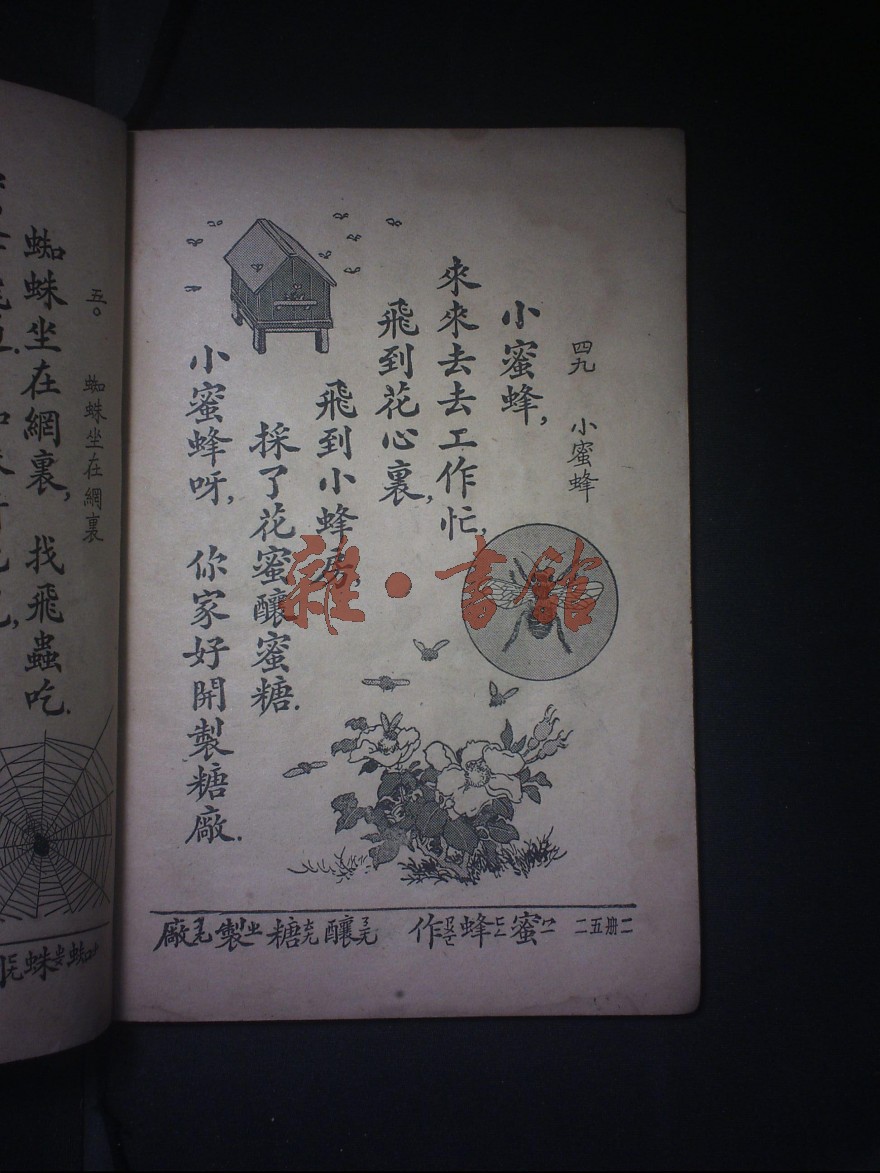 四九 小蜜蜂
小蜜蜂,
來來去去工作忙,
飛到花心裏,
飛到小蜂房.
採了花蜜釀蜜糖.
小蜜蜂呀, 你家好開製糖廠.
二册五二 蜜蜂作 釀糖製廠
五〇 蜘蛛坐在網裏
蜘蛛坐在網裏, 找飛蟲吃.
蜘蛛
雜·書館